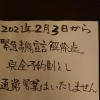 2021年2月3日から
緊急事態宣言解除迄
完全予約制とし
通常営業はいたしません